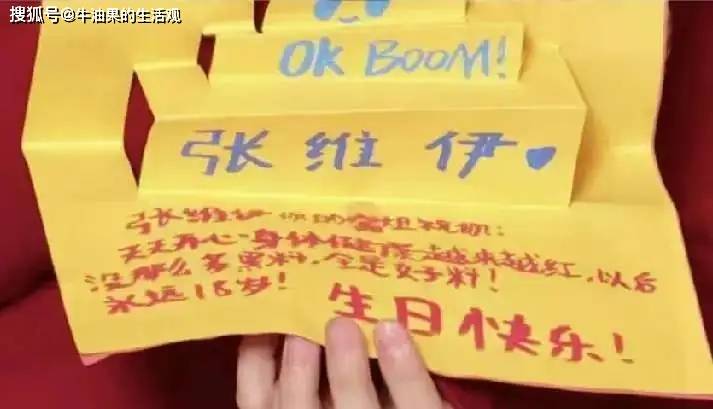 搜狐号@牛油果的生活观
OK BOOM!
张维伊
张维伊你的富姐祝你:
天天开心、身体健康越来越红,以后
没那么多黑料,全是好料!
永远18岁!
生日快乐!